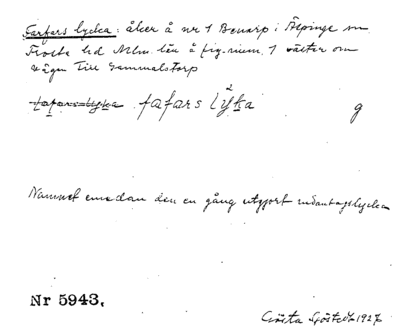 Farfars lycka: åker å nr 1 Benarp i Äspinge sn
Frosta hd Mlm. län å fig. num. 1 väster om
vägen till Gammalstorp
fafars lyka fafars lyka g
Namnet emedan den en gång utgjort undantagslycka
Nr 5943.
Gösta Sjöstedt 1927